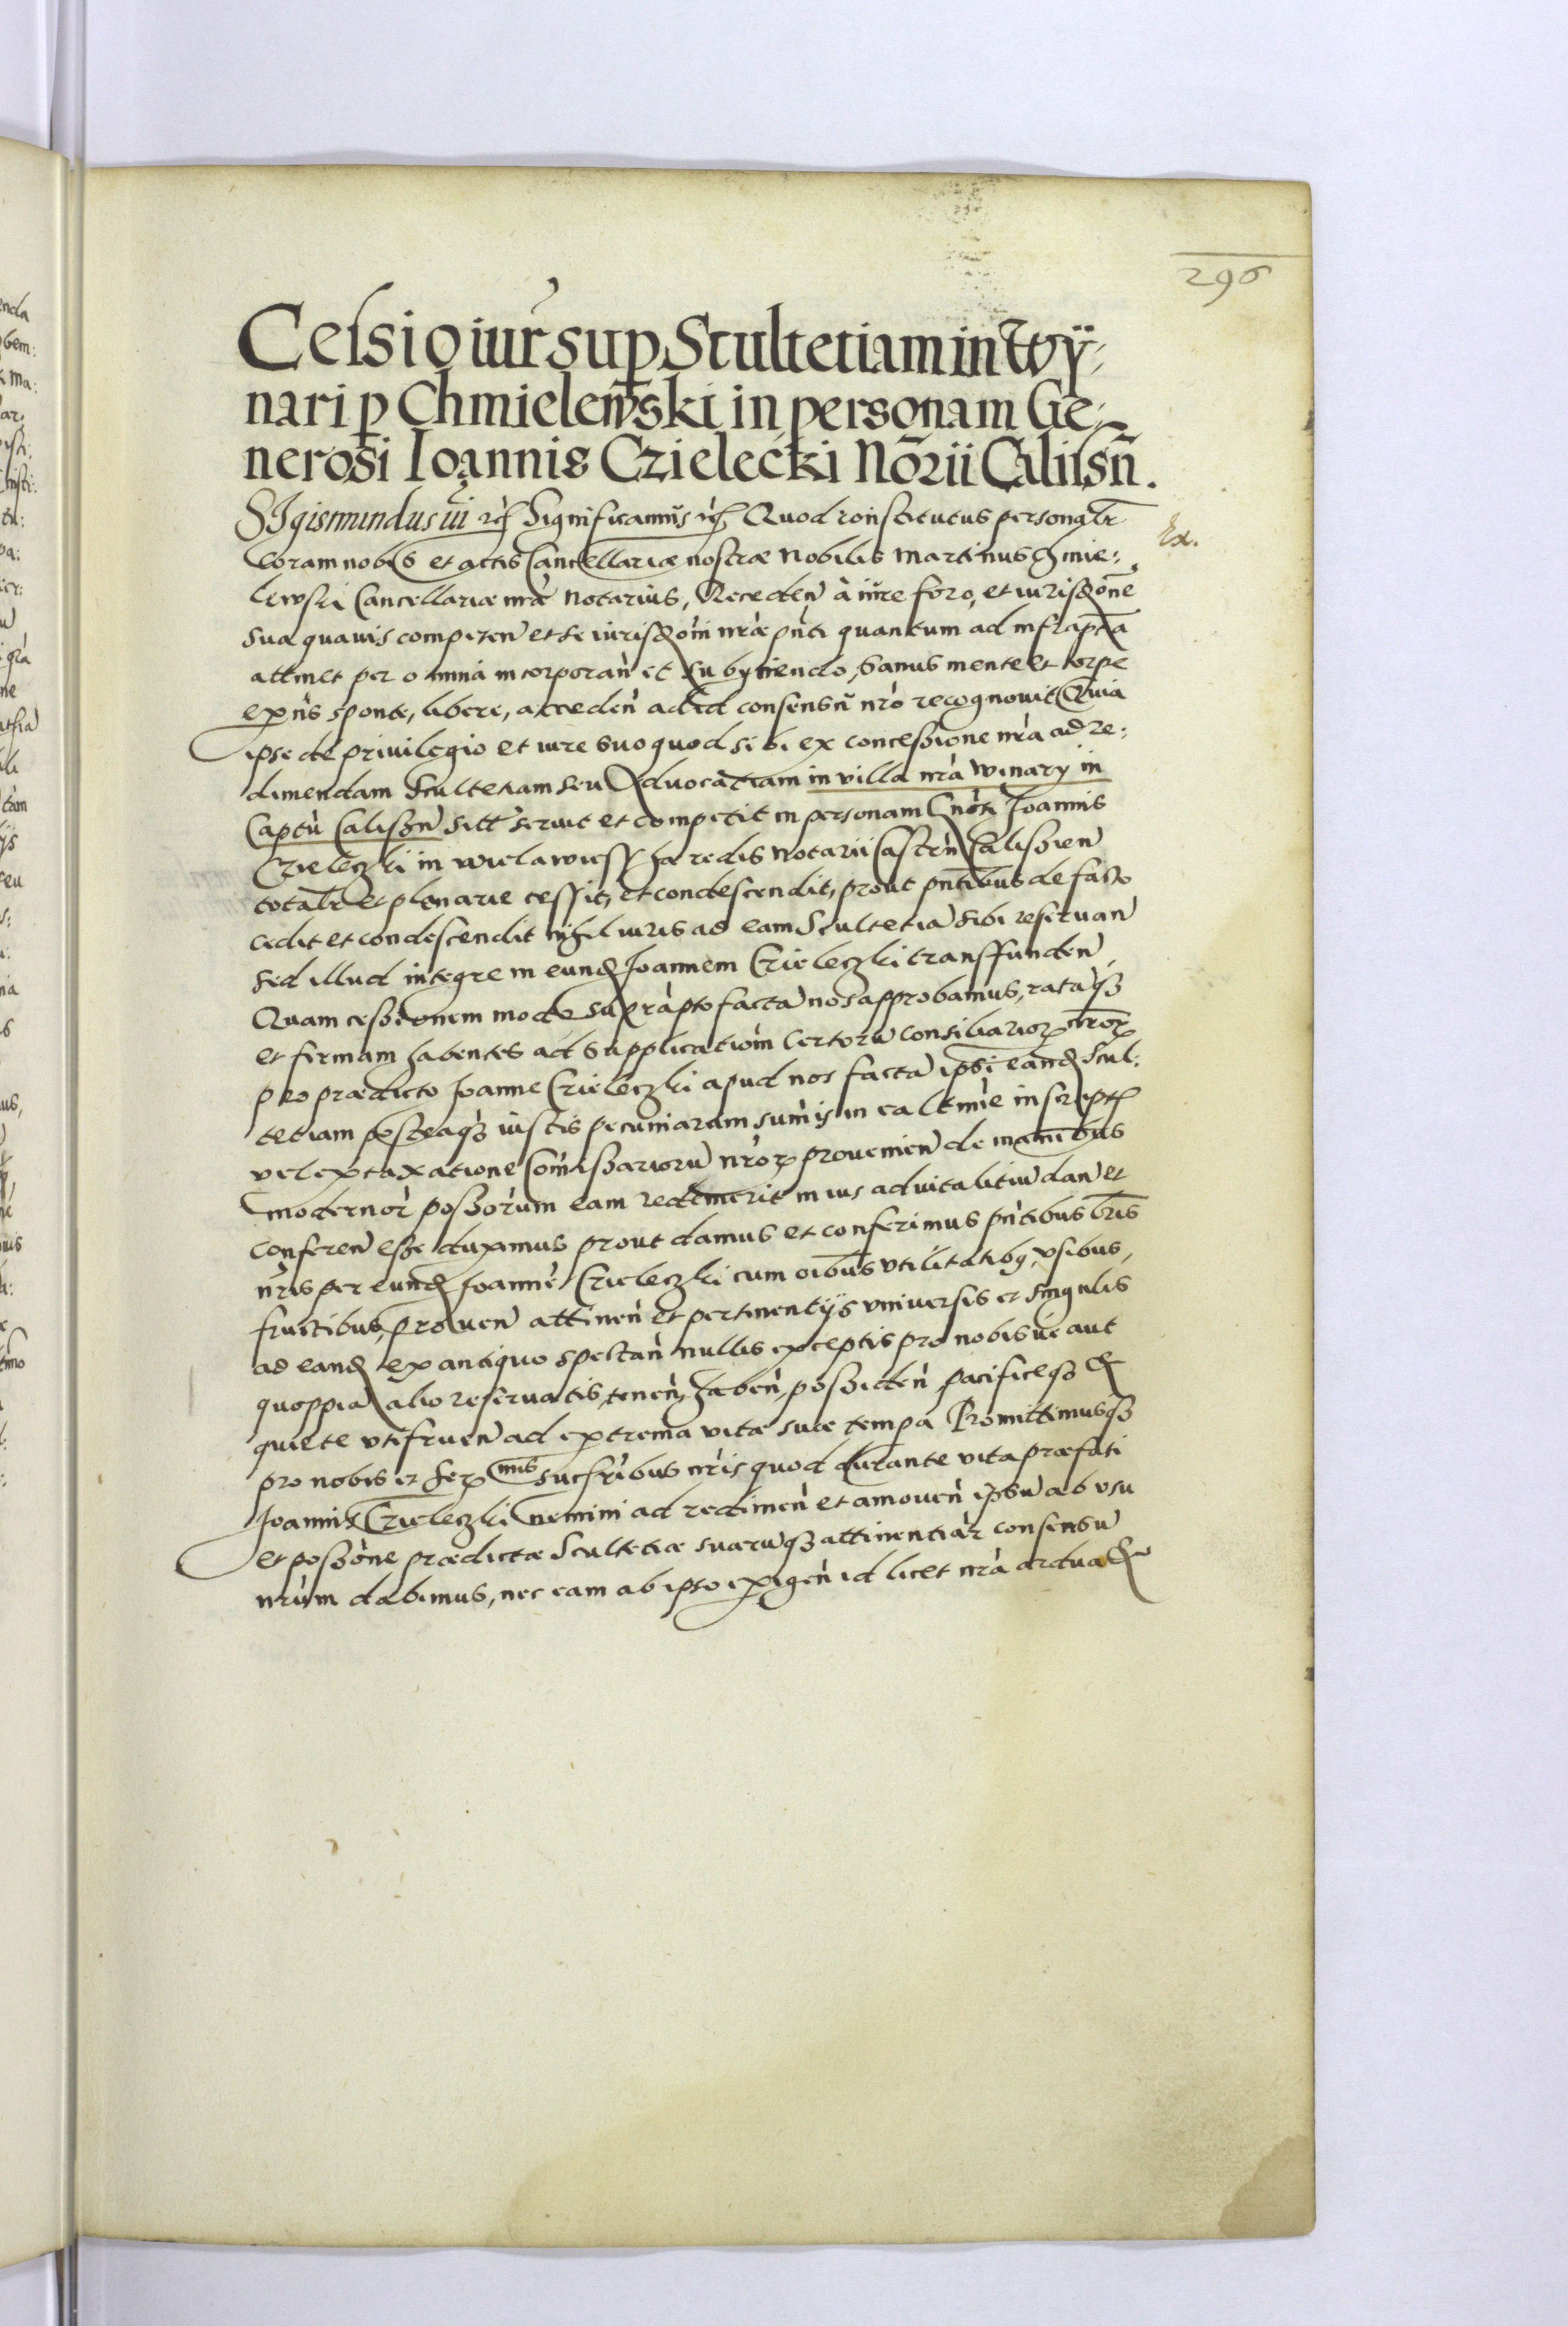 296
Cessio iur̃ sup Scultetiam in Wÿ⸗
nari p Chmielewski in personam Ge⸗
nerosi Ioannis Czielecki No̅rii Calisn̅.
SJgismundus iii rc̃ Significamus rc̃ Quod constitutus personalr̃
Ex.
coram nobis et actis Cancellariæ nostræ Nobilis Martinus Chmie:
lewski Cancellariæ nr̃æ Notarius, Receden̅ à iure foro, et iurisdõne
sua quavis competen̅ et se iurisdõni nr̃æ pn̅ti quantum ad infrapt̃a
attinet per omnia incorporan̅ et subyciendo, sanus mente et corpe
exn̅s sponte, libere, acceden̅ ad id consensu̅ nr̃o recognovit Quia
ipse de privilegio et iure suo quod sibi ex concessione nr̃a ad re:
dimendam Scultetiam seu Advocatiam in villa nr̃a Winary in
Captũ Calissn̅ sitt servit et competit in personam Gn̅õsi Joannis
Czieleczki in Wielawiess hæredis Notarii Castrn̅ Calissien̅
totalr̃ et plenarie cessit, et condescendit, prout pn̅tibus de facto
cedit et condescendit nihil iuris ad eam Scultetia̅ sibi reservan̅
sed illud integre in eund Joannem Czieleczki transffunden̅,
Quam cessionem modo suprapto facta̅ nos approbamus, rata̅q3
et firmam habentes ad supplicatio̅m certoru̅ consiliarior nr̃or
pro prædicto Joanne Czieleczki apud nos facta̅ ipsi eand Scul:
tetiam posteaq3 iustis pecuniaram sum̃is in ea l̃tmie inscript
vel ex taxatione Com̃issarioru̅ nr̃or provenien̅ de manibus
modernor̃ possõrum eam redemerit in ius advitalitiu̅ dan̅ et
conferen̅ esse duximus prout damus et conferimus pn̅tibus lr̃is
nr̃is per eund Joanne̅ Czieleczki cum oĩbus utilitatibq, usibus,
fructibus, proven̅ attinen̅ et pertinentijs universis et singulis
ad eand ex antiquo spectan̅ nullis exceptis pro nobisve aut
quoppia̅ alio reservatis, tenen̅, haben̅, possiden̅ pacificeq3 &
quiete utifruen̅ ad extrema vitæ suæ tempa̅ Promittimusq3
pro nobis et Ser mis succr̃ibus nr̃is quod durante vita præfati
Joannis Czieleczki nemini ad redimen̅ et amoven̅ ipsu̅ ab usu
et possõne prædictæ Scultetiæ suaru̅q3 attinentiar̃ consensu̅
nr̃um dabimus, nec eam ab ipso exigen̅ id licet nr̃a ardua &